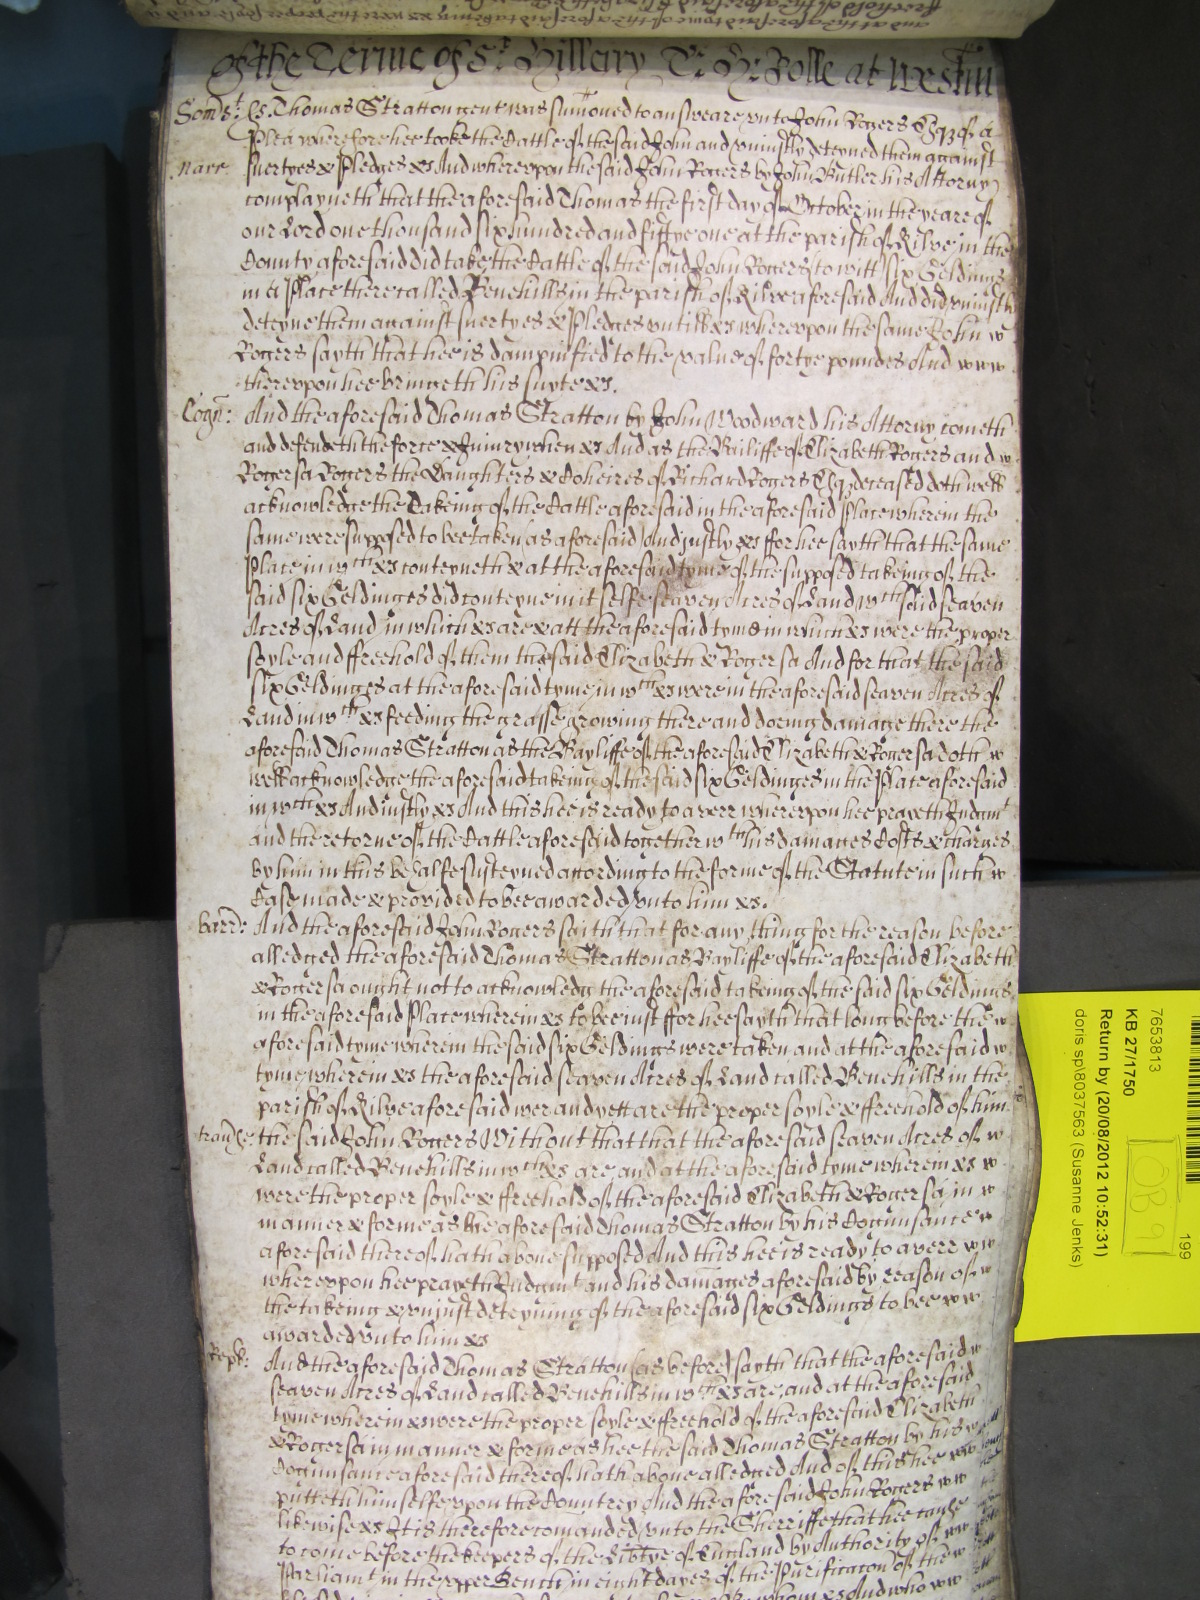 of the Terme of St Hillary
Somst: ss. Thomas Stratton gent was sumoned to answeare unto John Rogers Esqr of a
Plea wherefore hee tooke the Cattle of the said John and uniustly deteyned them against
Narr: suertyes & Pledges &c And whereupon the said John Rogers by John Butler his Attorny
complayneth that the aforesaid Thomas the first day of October in the yeare of
our Lord one thousand six hundred and fiftye one at the parish of Kilve in the
County aforesaid did take the Cattle of the said John Rogers to witt six Geldings
in a Place there called Benehills in the parish of Kilve aforesaid And did uniustly
deteyne them against suertyes & Pledges untill &c whereupon the same John
Rogers sayth that hee is dampnified to the value of fortye poundes And
thereupon hee bringeth his suyte &c.
Cogn: And the aforesaid Thomas Stratton by John Woodward his Attorny cometh
and defendeth the force & Iniury when &c And as the Bailiffe of Elizabeth Rogers and
Rogersa Rogers the Daughters & Coheires of Richard Rogers Esqr deceased doth well
acknowledge the Takeing of the Cattle aforesaid in the aforesaid Place wherein the
same were supposed to bee taken as aforesaid And justly &c ffor hee sayth that the same
Place in wch &c conteyneth & at the aforesaid tyme of the supposed takeing of the
said six Geldinges did conteyne in it selfe seaven Acres of Land wch said seaven
Acres of Land in which &c are & att the aforesaid tyme in which &c were the proper
soyle and ffreehold of them the said Elizabeth & Rogersa And for that the said
six Geldinges at the aforesaid tyme in wch &c were in the aforesaid seaven Acres of
Land in wch &c feeding the grasse growing there and doeing damage there the
aforesaid Thomas Stratton as the Bayliffe of the aforesaid Elizabeth & Rogersa doth
well acknowledge the aforesaid takeing of the said six Geldinges in the Place aforesaid
in wch &c And iustly &c And this hee is ready to averr whereupon hee prayeth Judgmt
and the retorne of the Cattle aforesaid together wth his damages Costs & charges
by him in this behalfe susteyned according to the forme of the Statute in such
Case made & provided to bee awarded unto him &c.
Barr: And the aforesaid John Rogers saith that for any thing for the reason before
alledged the aforesaid Thomas Stratton as Bayliffe of the aforesaid Elizabeth
& Rogersa ought not to acknowledg the aforesaid takeing of the said six Geldings
in the aforesaid Place wherein &c to bee iust ffor hee sayth that long before the
aforesaid tyme wherein the said six Geldings were taken and at the aforesaid
tyme wherein &c the aforesaid seaven Acres of Land called Benehills in the
parish of Kilve aforesaid wer and yett are the proper soyle & ffreehold of him
the said John Rogers Without that that the aforesaid seaven Acres of
Land called Benehills in wch &c are and at the aforesaid tyme wherein &c
were the proper soyle & ffreehold of the aforesaid Elizabeth & Rogersa in
manner & forme as the aforesaid Thomas Stratton by his Cognisance
aforesaid thereof hath above supposed And this hee is ready to averr
whereupon hee prayeth Judgmt and his damages aforesaid by reason of
the takeing & uniust deteyning of the aforesaid six Geldings to bee
awarded unto him &c
Repl: And the aforesaid Thomas Stratton (as before) sayth that the aforesaid
seaven Acres of Land called Benehills in wch &c are, and at the aforesaid
tyme wherein &c were the proper soyle & ffreehold of the aforesaid Elizabeth
& Rogersa in manner & forme as hee the said Thomas Stratton by his
Cognisance aforesaid thereof hath above alledged And of this hee
putteth himselfe upon the Countrey And the aforesaid John Rogers
likewise &c It is therefore comanded unto the Sherriffe that hee cause
to come before the keepers of the Libtye of England by Authority of
Parliamt in the upper Bench in eight dayes of the Purificacon of the
by whom &c And who
7653813
KB 27/1750
Return by (20/08/2012 10:52:31)
doris sp\8037563 (Susanne Jenks)
199
OB 9